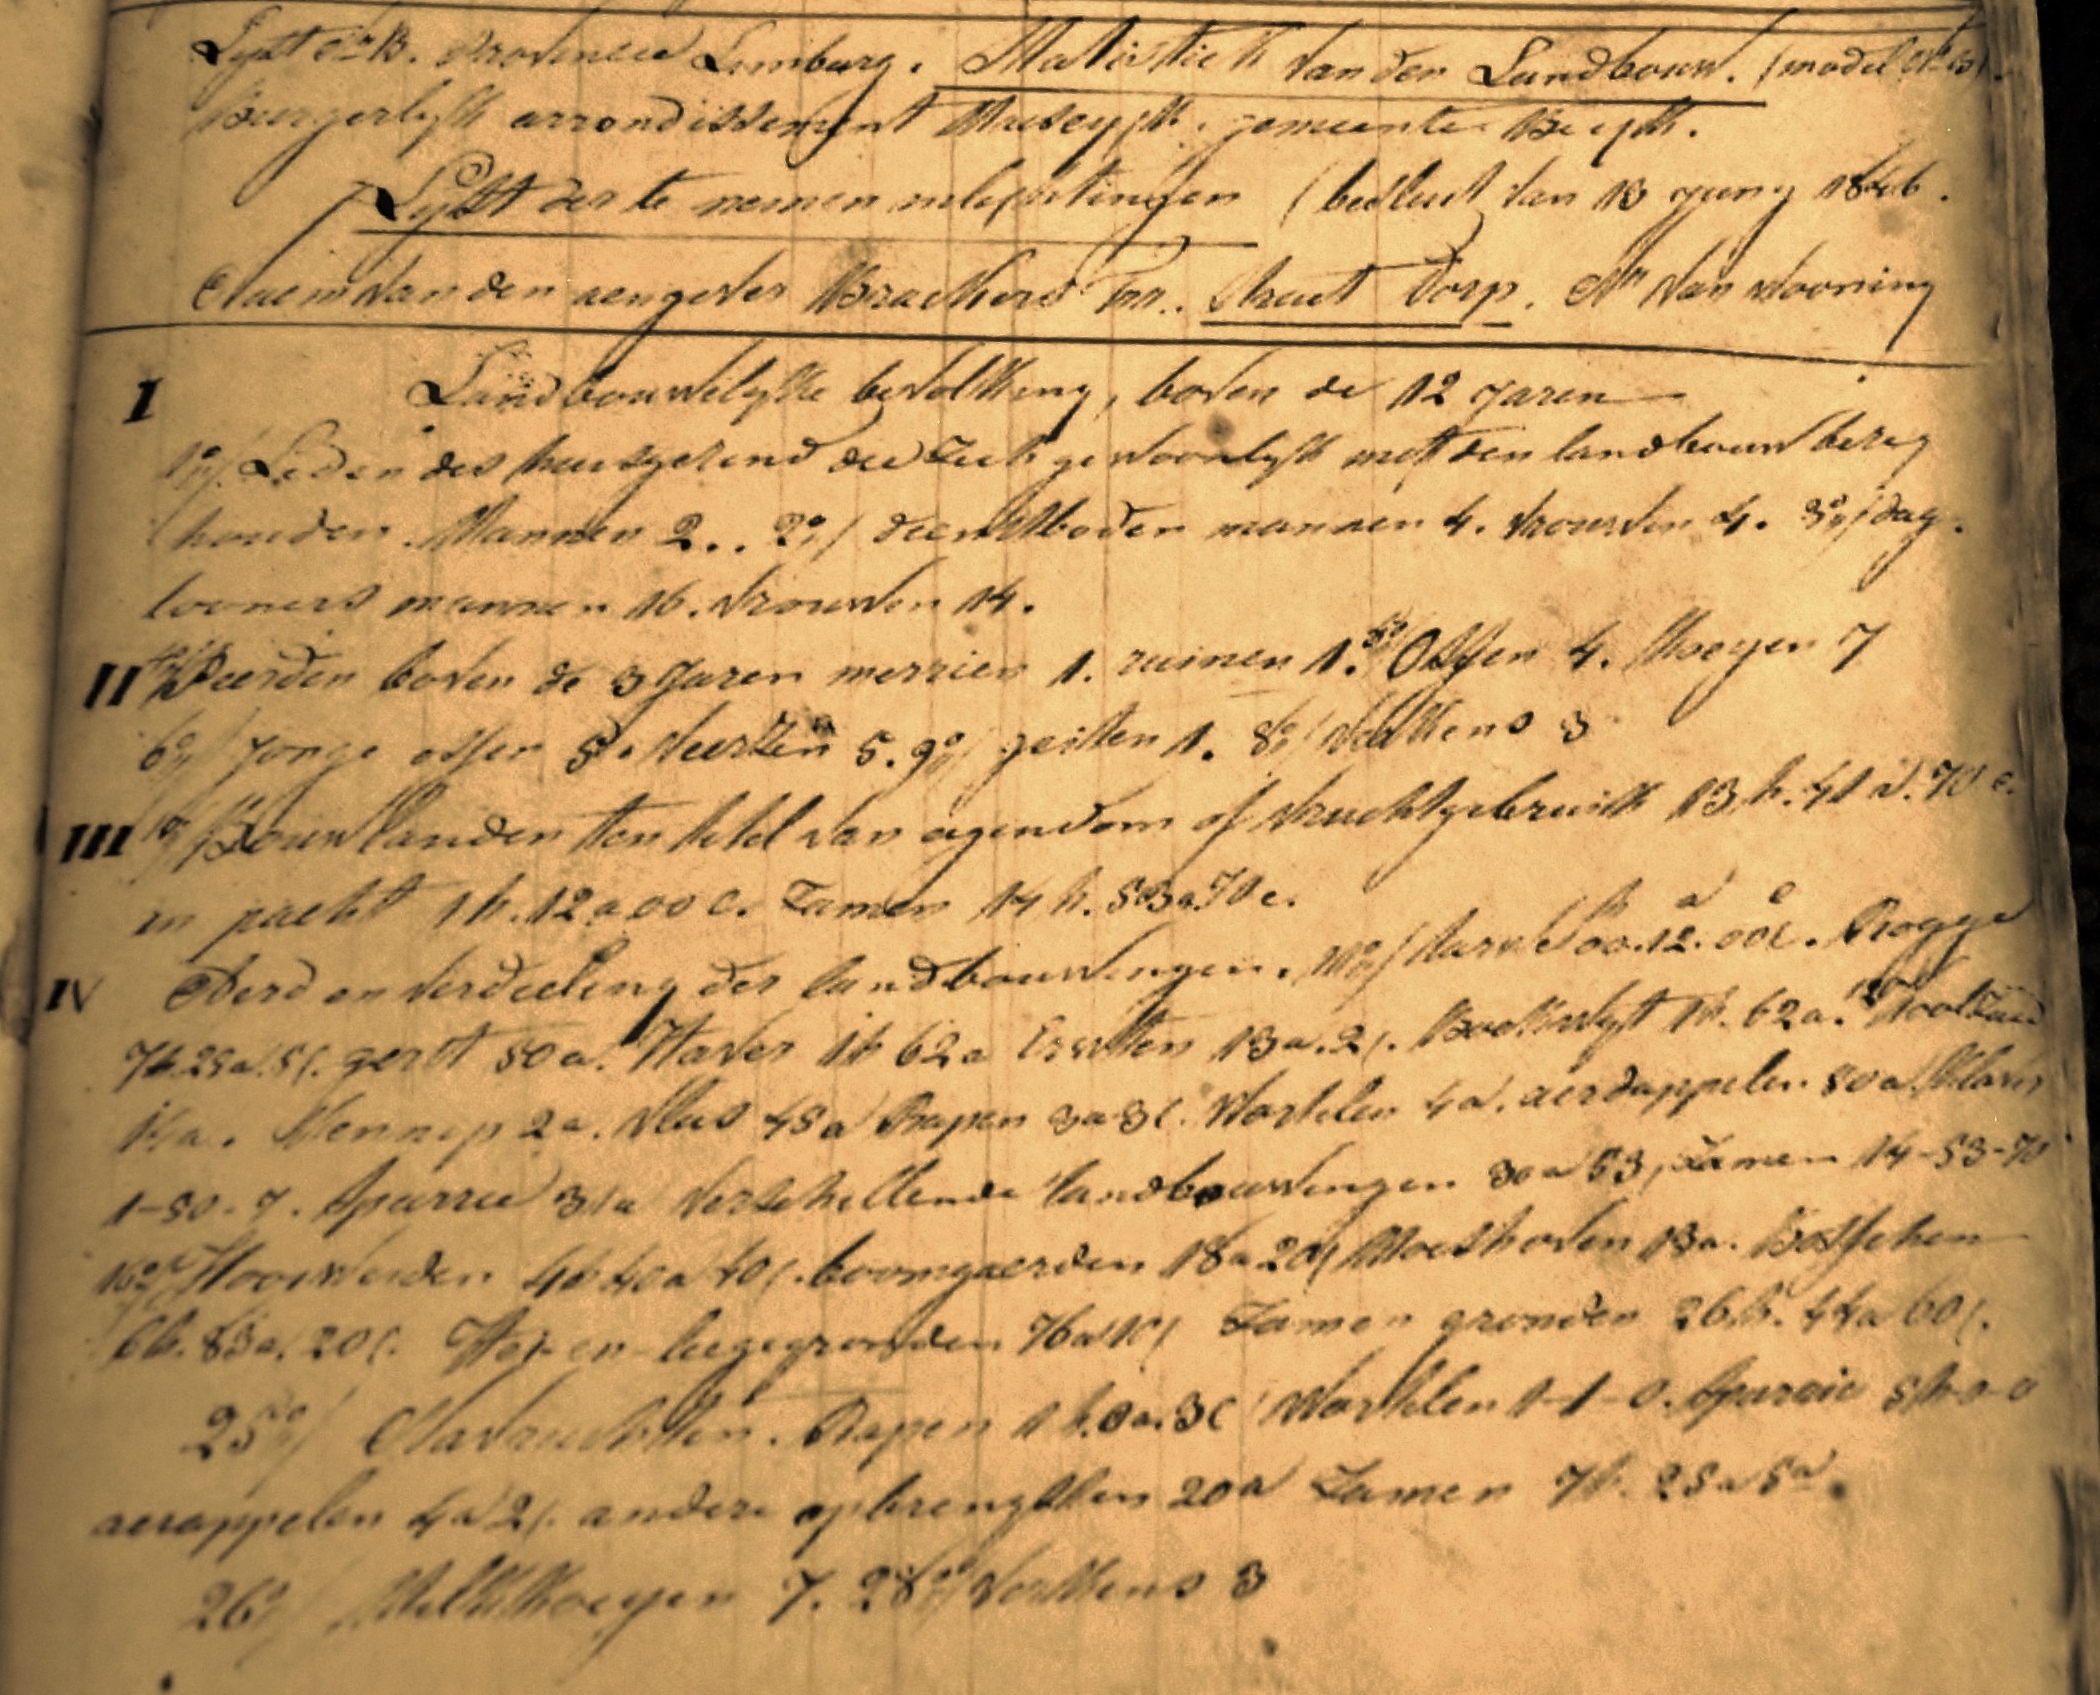 Lyst Nr B. Provincie Limburg. Statistiek van den Landbouw. (model Nr B).
Burgerlyk arrondissement Maeseyck. gemeente Beeck.
Lyst der te nemen inligtingen (besluit van 13 juny 1846.
Naem van den aengever Brackers Fr.. Straet Dorp. Nr van wooning
I Landbouwelyke bevolking, boven de 12 jaren
1º/ Leden des huisgezind die zich gewoonlyk met den landbouw bezig
houden. Mannen 2.. 2º/ dienstboden mannen 4. vrouwen 4. 3º/ dag-
looners mannen 16. vrouwen 14.
II 4º/ Peerden boven de 3 jaren merrien 1. ruinen 1. 5º/ Ossen 4. Koeyen 7
6º/ jonge ossen 5. veerzen 5. 9º/ geiten 1. 8º/ verkens 3
III 10º/ Bouwlanden ten titel van eigendom of vruchtgebruik 13 h. 41 a. 70 c.
in pacht 1 h. 12 a 00 c. Zamen 14 h. 53 a 70 c.
IV Aerd en verdeeling der landbouwingen. 11º/ Tarwe 00. 12. 00 c. Rogge
7h. 25a. 5c. gerst 50 a. Haver 1h 62a Erwten 13a. 2c. Boekweyt 1h. 62a. 12º Koolzaed
14a. Kennep 2a. Vlas 45a Rapen 3a 3c. Wortelen 4a. aerdappelen 50a Klaver
1-50-7. Spurrie 31a Verschillende landbouwingen 30a 53, Zamen 14-53-70
16º/ Hooiweiden 4h 40a 40c. boomgaerden 18a 20c Moeshoven 13a. Bosschen
6h. 83a. 20c. Hei-en-leegegronden 76a 10c Zamen gronden 26h. 44a 60c.
25º/ Navruchten. Rapen 1h. 0a. 3c Wortelen 1-1-0. Spurrie 5h-0-0
aerappelen 4a 2c. andere opbrengsten 20a Zamen 7h. 25a 5a.
26º/ Melkkoeyen 7. 28º/ Verkens 3